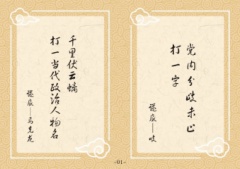 千里伏云蟠
打一当代政治人物名
谜底——马克龙
党内分歧未止
打一字
谜底——吱